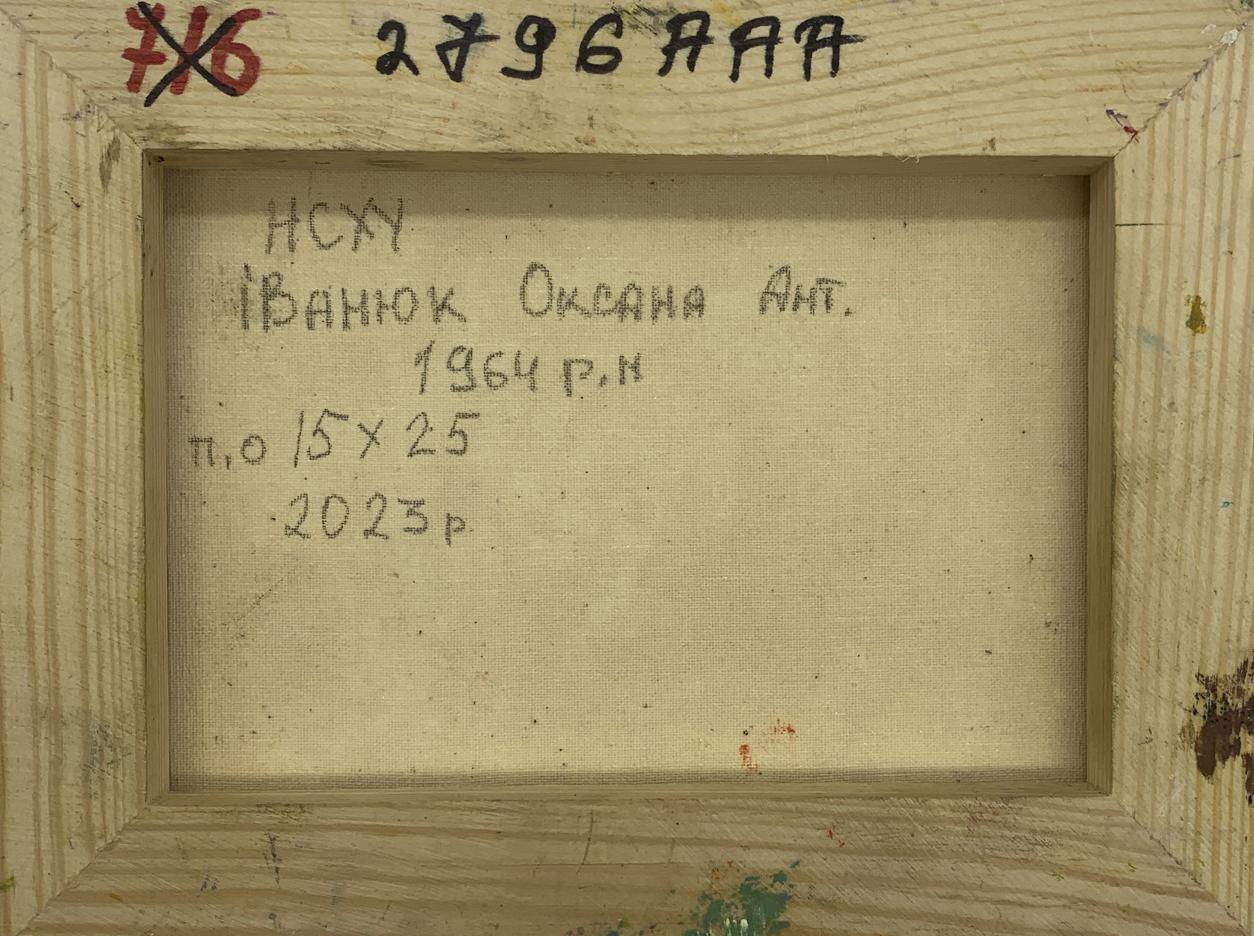 716 2796 AAA
НСХУ
Іванюк Оксана Ант.
1964 р.н
п,о 15х25
2023р